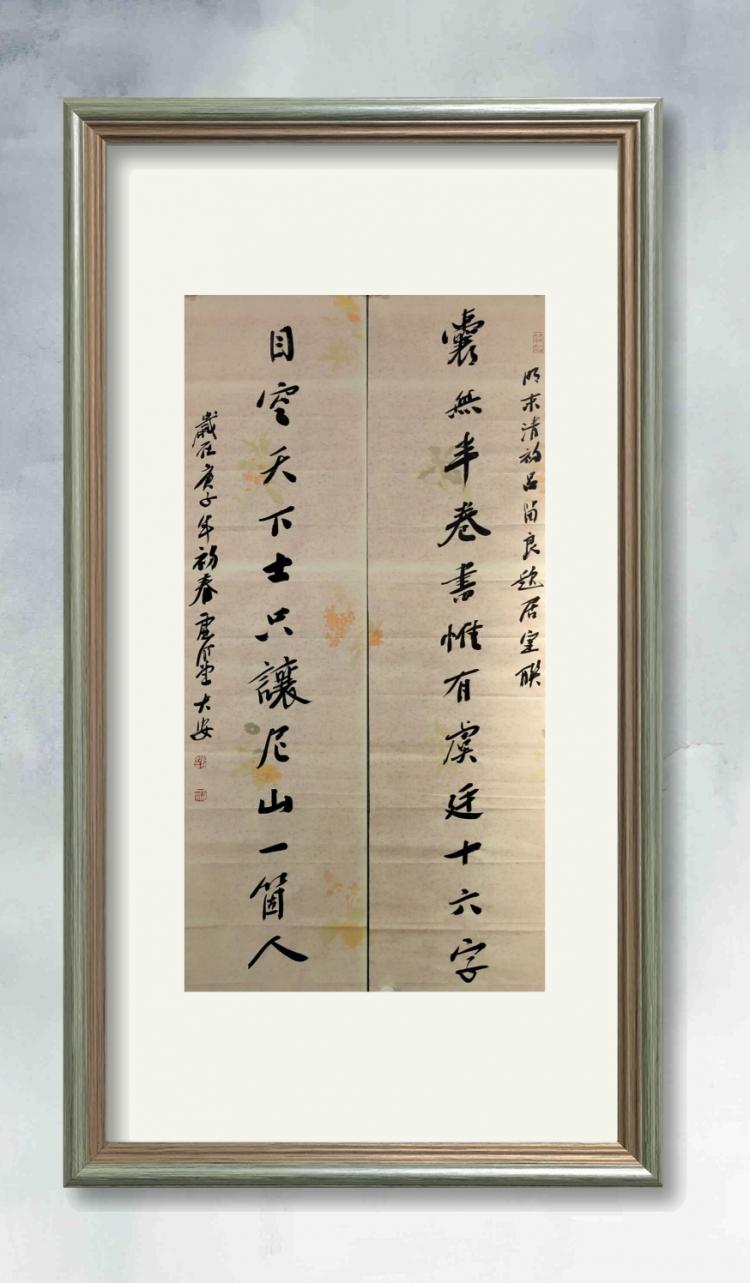 明末清初呂留良題居室聯
囊無半卷書惟有虞廷十六字
目空天下士只讓尼山一箇人
歲在庚子年初春大安